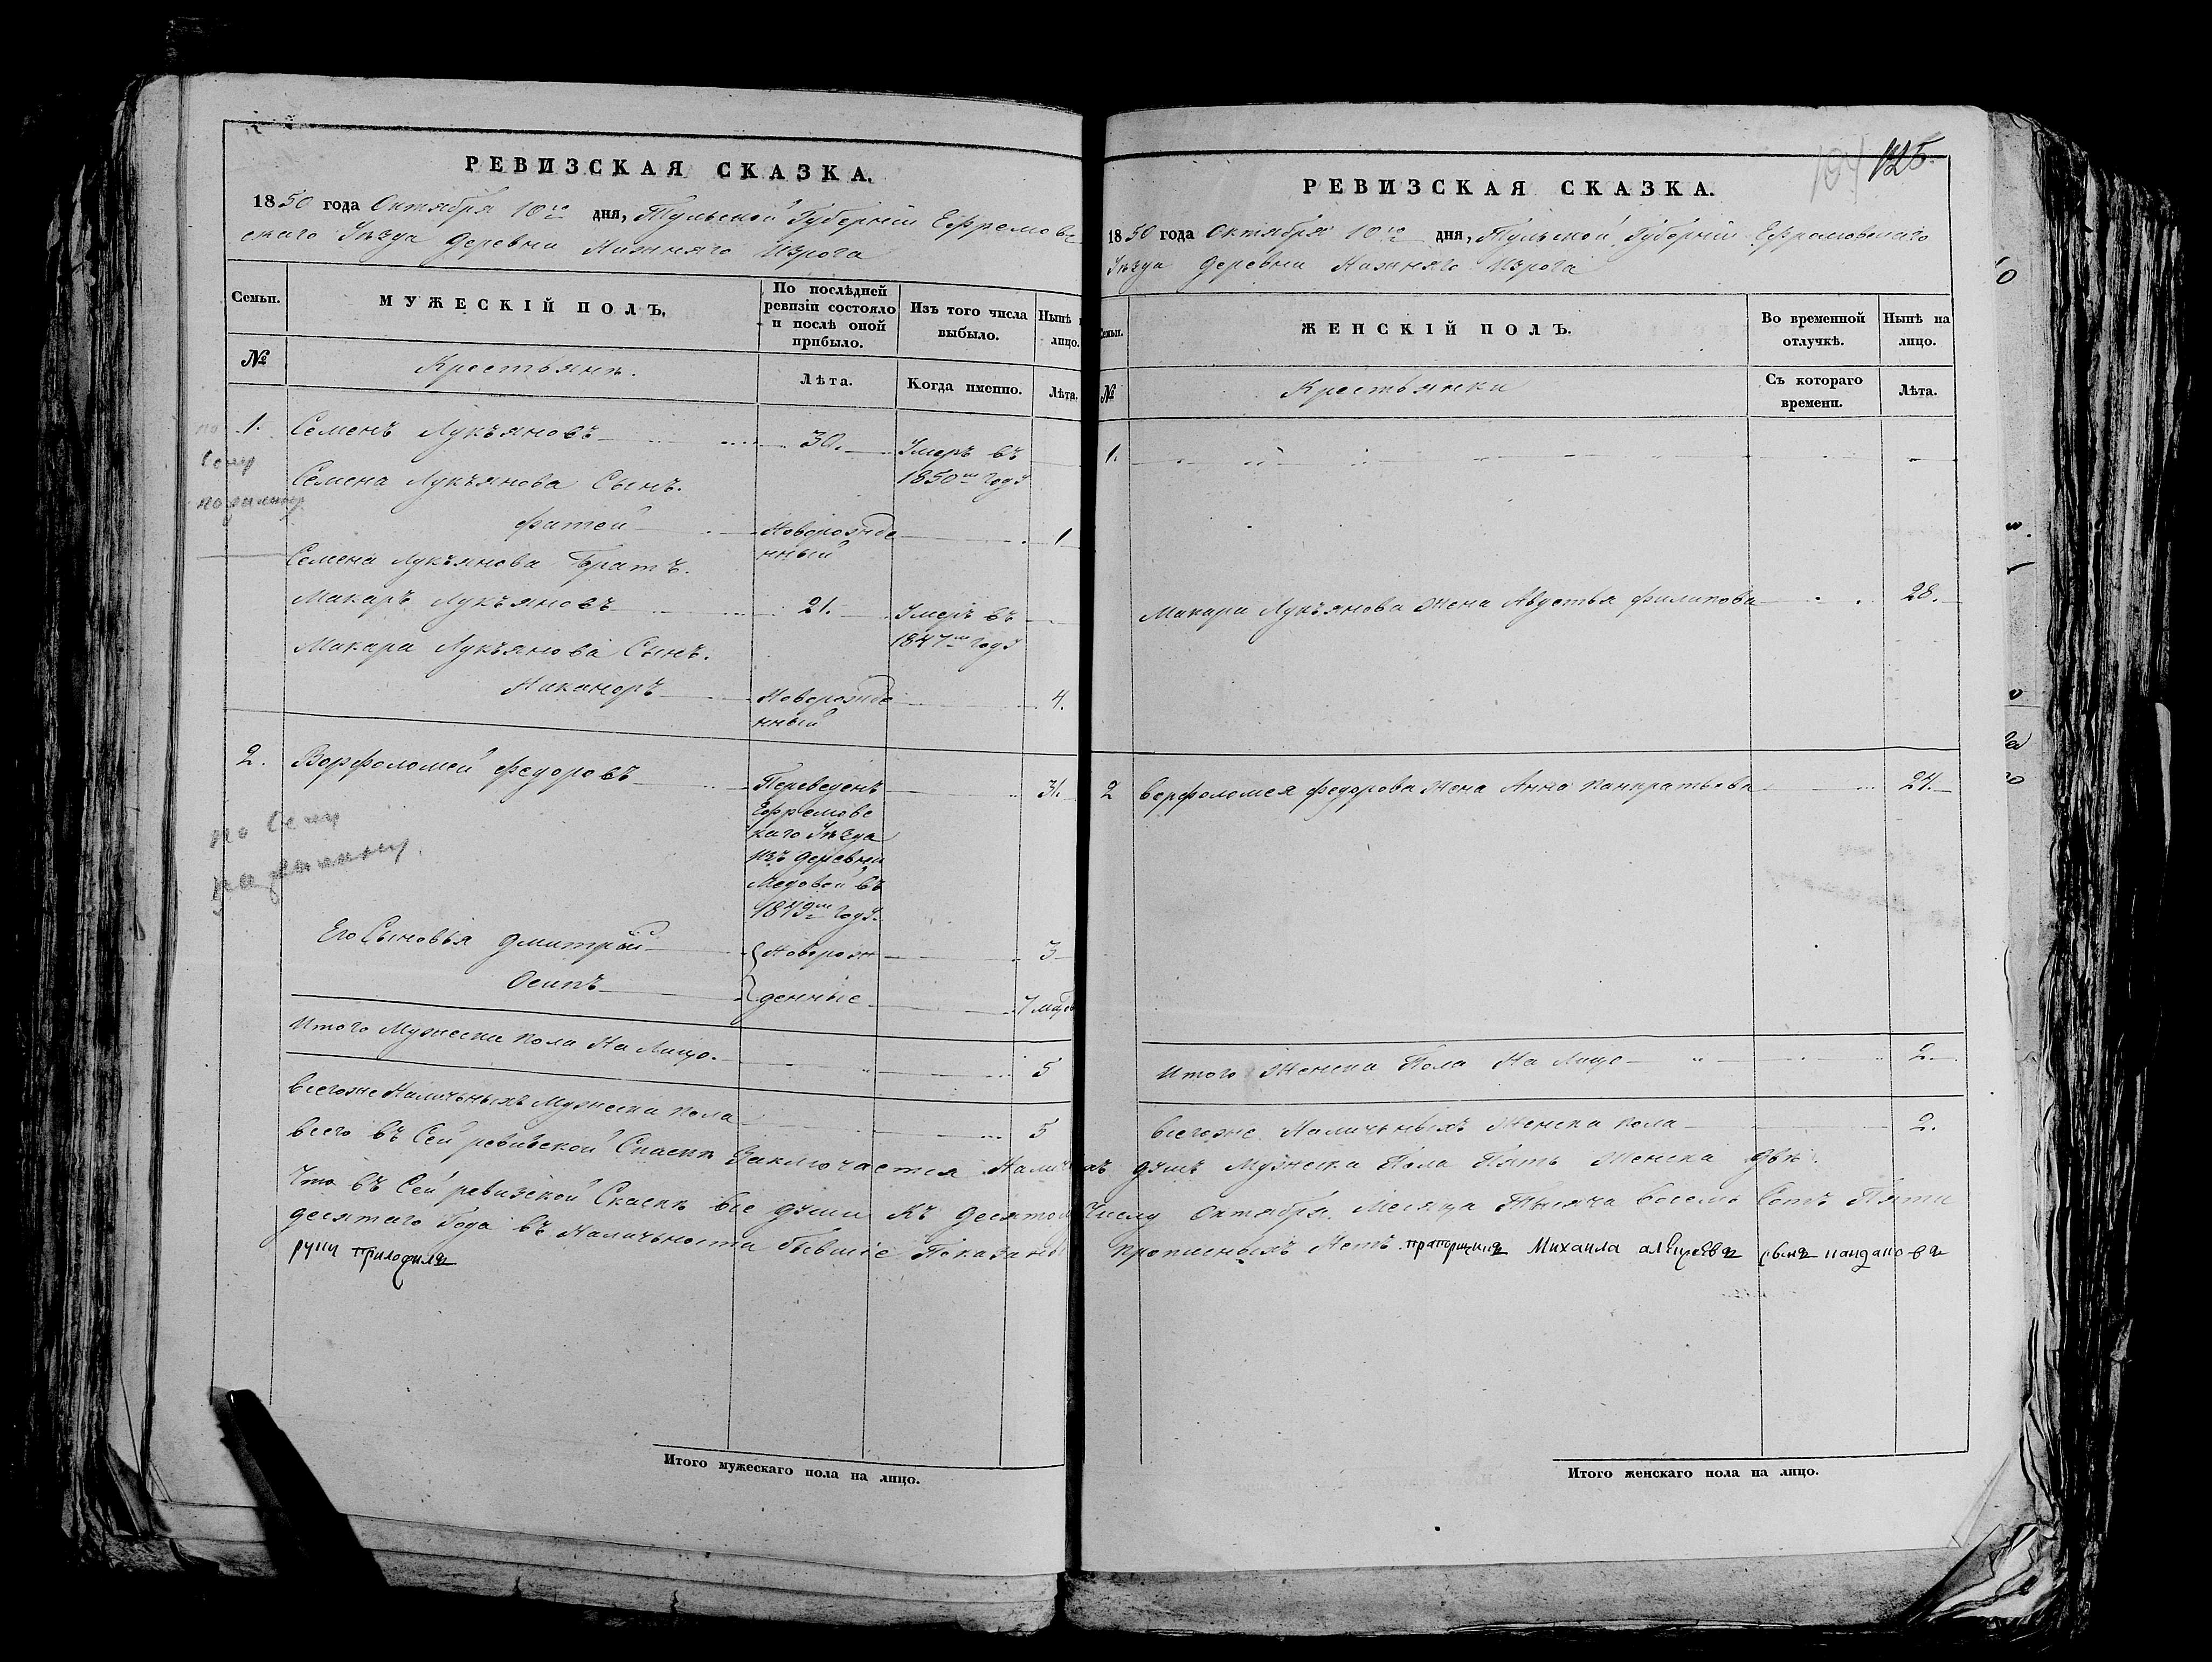 РЕВИЗСКАЯ СКАЗКА.
1850 года Октября 10го дня, Тульской Губернiи Ефремов-
скаго Уѣзда Деревни Нижняго Изрога
Семьи.
МУЖЕСКIЙ ПОЛЪ.
По послѣдней ревизiи состояло и послѣ оной прибыло.
Изъ того числа выбыло.
Нынѣ
лицо.
№
Крестьянѣ.
Лѣта.
Когда именно.
Лѣта.
1. Семенъ Лукъяновъ 30. Умеръ въ
1850м Году
Семена Лукъянова Сынъ.
Фатей Новорожде 1
нный
Семена Лукъянова Братъ.
Макаръ Лукъяновъ 21. Умеръ въ
1847м Году
Макара Лукъянова Сынъ.
Никаноръ Новорожде 4.
нный
2. Ворфоломей Федоровъ Переведенъ 31.
Ефремовс
каго Уѣзда
изъ Деревни
Медовой въ
Году.
по сему
Его Сыновья Дмитрѣй Новорож 3
Осипъ денные 7
Итого Мужеска пола На Лицо. 5
Всегоже Наличьныхъ Мужеска пола 5
РЕВИЗСКАЯ СКАЗКА.
125.
1850 года Октября 10го дня, Тульской Губернiи Ефремовскаго
Уѣзда Деревни Нижняго Изрога
Семьи.
ЖЕНСКIЙ ПОЛЪ.
Во временной отлучкѣ.
Нынѣ на лицо.
№
Крестьянки
Съ котораго времени.
Лѣта.
1.
Макара Лукъянова жена Авдотья Филипова 28.
2 Ворфоломея Федорова жена Анна Панкратьева 27.
Итого Женска Пола На Лицо 2.
Всегоже Наличьныхъ Женска пола 2.
Всего въ Сей ревизской Скаскѣ Заключается Наличныхъ душъ Мужеска Пола Пять Женска Двѣ.
Что въ Сей ревизской Скаскѣ Все души Къ Десятому Числу Октября Месяца Тысяча Восемь Сотъ Пяти
десятаго Года въ Наличьности бывшiе Показаны прописныхъ Нетъ прапорщикъ Михаила
руку приложилъ
Итого мужескаго пола на лицо.
Итого женскаго пола на лицо.